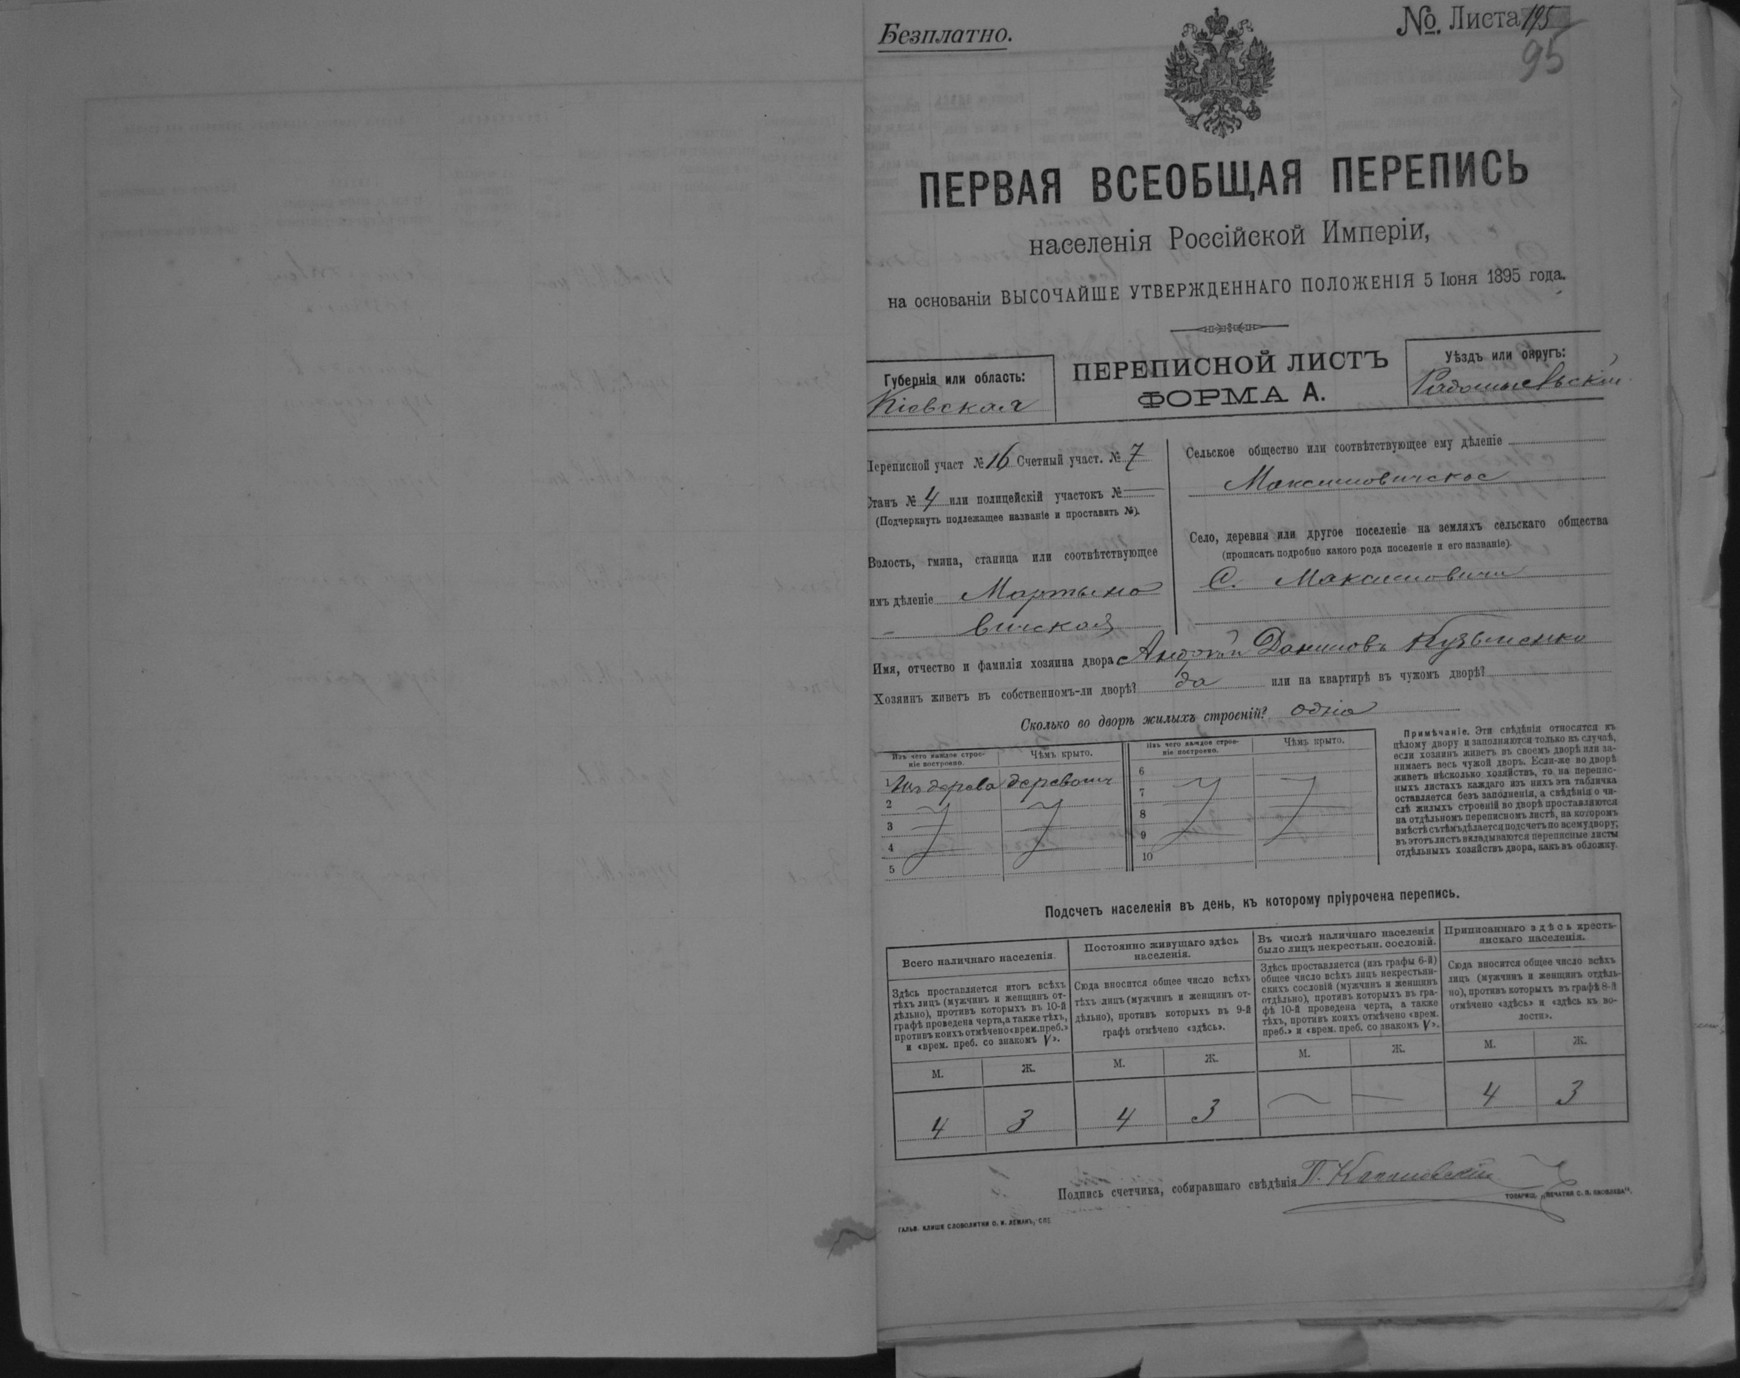 Безплатно.
№. Листа 195
95
ПЕРВАЯ ВСЕОБЩАЯ ПЕРЕПИСЬ
населенія Россійской Имперіи,
на основаніи ВЫСОЧАЙШЕ УТВЕРЖДЕННАГО ПОЛОЖЕНІЯ 5 Іюня 1895 года.
Губернія или область:
Кіевская
ПЕРЕПИСНОЙ ЛИСТЪ
ФОРМА А.
Уѣздъ или округъ:
Радомысльскій
Переписной участ № 16 Счетный участ. № 7
Станъ № 4 или полицейскій участокъ №
(Подчеркнуть подлежащее названіе и проставить №).
Волость, гмина, станица или соотвѣтствующее
имъ дѣленіе Мартыно
вичская
Сельское общество или соотвѣтствующее ему дѣленіе
Максимовичское
Село, деревня или другое поселеніе на земляхъ сельскаго общества
(прописать подробно какого рода поселеніе и его названіе)
С. Максимовичи
Имя, отчество и фамилія хозяина двора Андрій Даниловъ Кузьменко
Хозяинъ живетъ въ собственномъ-ли дворѣ? да или на квартирѣ въ чужомъ дворѣ?
Сколько во дворѣ жилыхъ строеній? одно
Изъ чего каждое строе-
ніе построено.
Чѣмъ крыто.
Изъ чего каждое строе-
ніе построено.
Чѣмъ крыто.
1 Изъ дерева деревомъ
2
3
4
5
6
7
8
9
10
Примѣчаніе. Эти свѣдѣнія относятся къ
цѣлому двору и заполняются только въ случаѣ,
если хозяинъ живетъ въ своемъ дворѣ или за-
нимаетъ весь чужой дворъ. Если-же во дворѣ
живетъ нѣсколько хозяйствъ, то на перепис-
ныхъ листахъ каждаго изъ нихъ эта табличка
оставляется безъ заполненія, а свѣдѣнія о чи-
слѣ жилыхъ строеній во дворѣ проставляются
на отдѣльномъ переписномъ листѣ, на которомъ
вмѣстѣ съ тѣмъ дѣлается подсчетъ по всему двору;
въ этотъ листъ вкладываются переписные листы
отдѣльныхъ хозяйствъ двора, какъ въ обложку.
Подсчетъ населенія въ день, къ которому пріурочена перепись.
Всего наличнаго населенія.
Здѣсь проставляется итогъ всѣхъ
тѣхъ лицъ (мужчинъ и женщинъ от-
дѣльно), противъ которыхъ въ 10-й
графѣ проведена черта, а также тѣхъ,
противъ коихъ отмѣчено «врем. преб.»
и «врем. преб. со знакомъ V».
Постоянно живущаго здѣсь
населенія.
Сюда вносится общее число всѣхъ
тѣхъ лицъ (мужчинъ и женщинъ от-
дѣльно), противъ которыхъ въ 9-й
графѣ отмѣчено «здѣсь».
Въ числѣ наличнаго населенія
было лицъ некрестьян. сословій.
Здѣсь проставляется (изъ графы 6-й)
общее число всѣхъ лицъ некрестьян-
скихъ сословій (мужчинъ и женщинъ
отдѣльно), противъ которыхъ въ гра-
фѣ 10-й проведена черта, а также
тѣхъ, противъ коихъ отмѣчено «врем.
преб.» и «врем. преб. со знакомъ V».
Приписаннаго здѣсь кресть-
янскаго населенія.
Сюда вносится общее число всѣхъ
лицъ (мужчинъ и женщинъ отдѣль-
но), противъ которыхъ въ графѣ 8-й
отмѣчено «здѣсь» и «здѣсь къ во-
лости».
М. Ж. М. Ж. М. Ж. М. Ж.
4 3 4 3 — — 4 3
Подпись счетчика, собиравшаго свѣдѣнія П.
ТОВАРИЩ. „ПЕЧАТНЯ С. П. ЯКОВЛЕВА“.
ГАЛЬВ. КЛИШЕ СЛОВОЛИТНИ О. И. ЛЕМАНЪ, СПБ